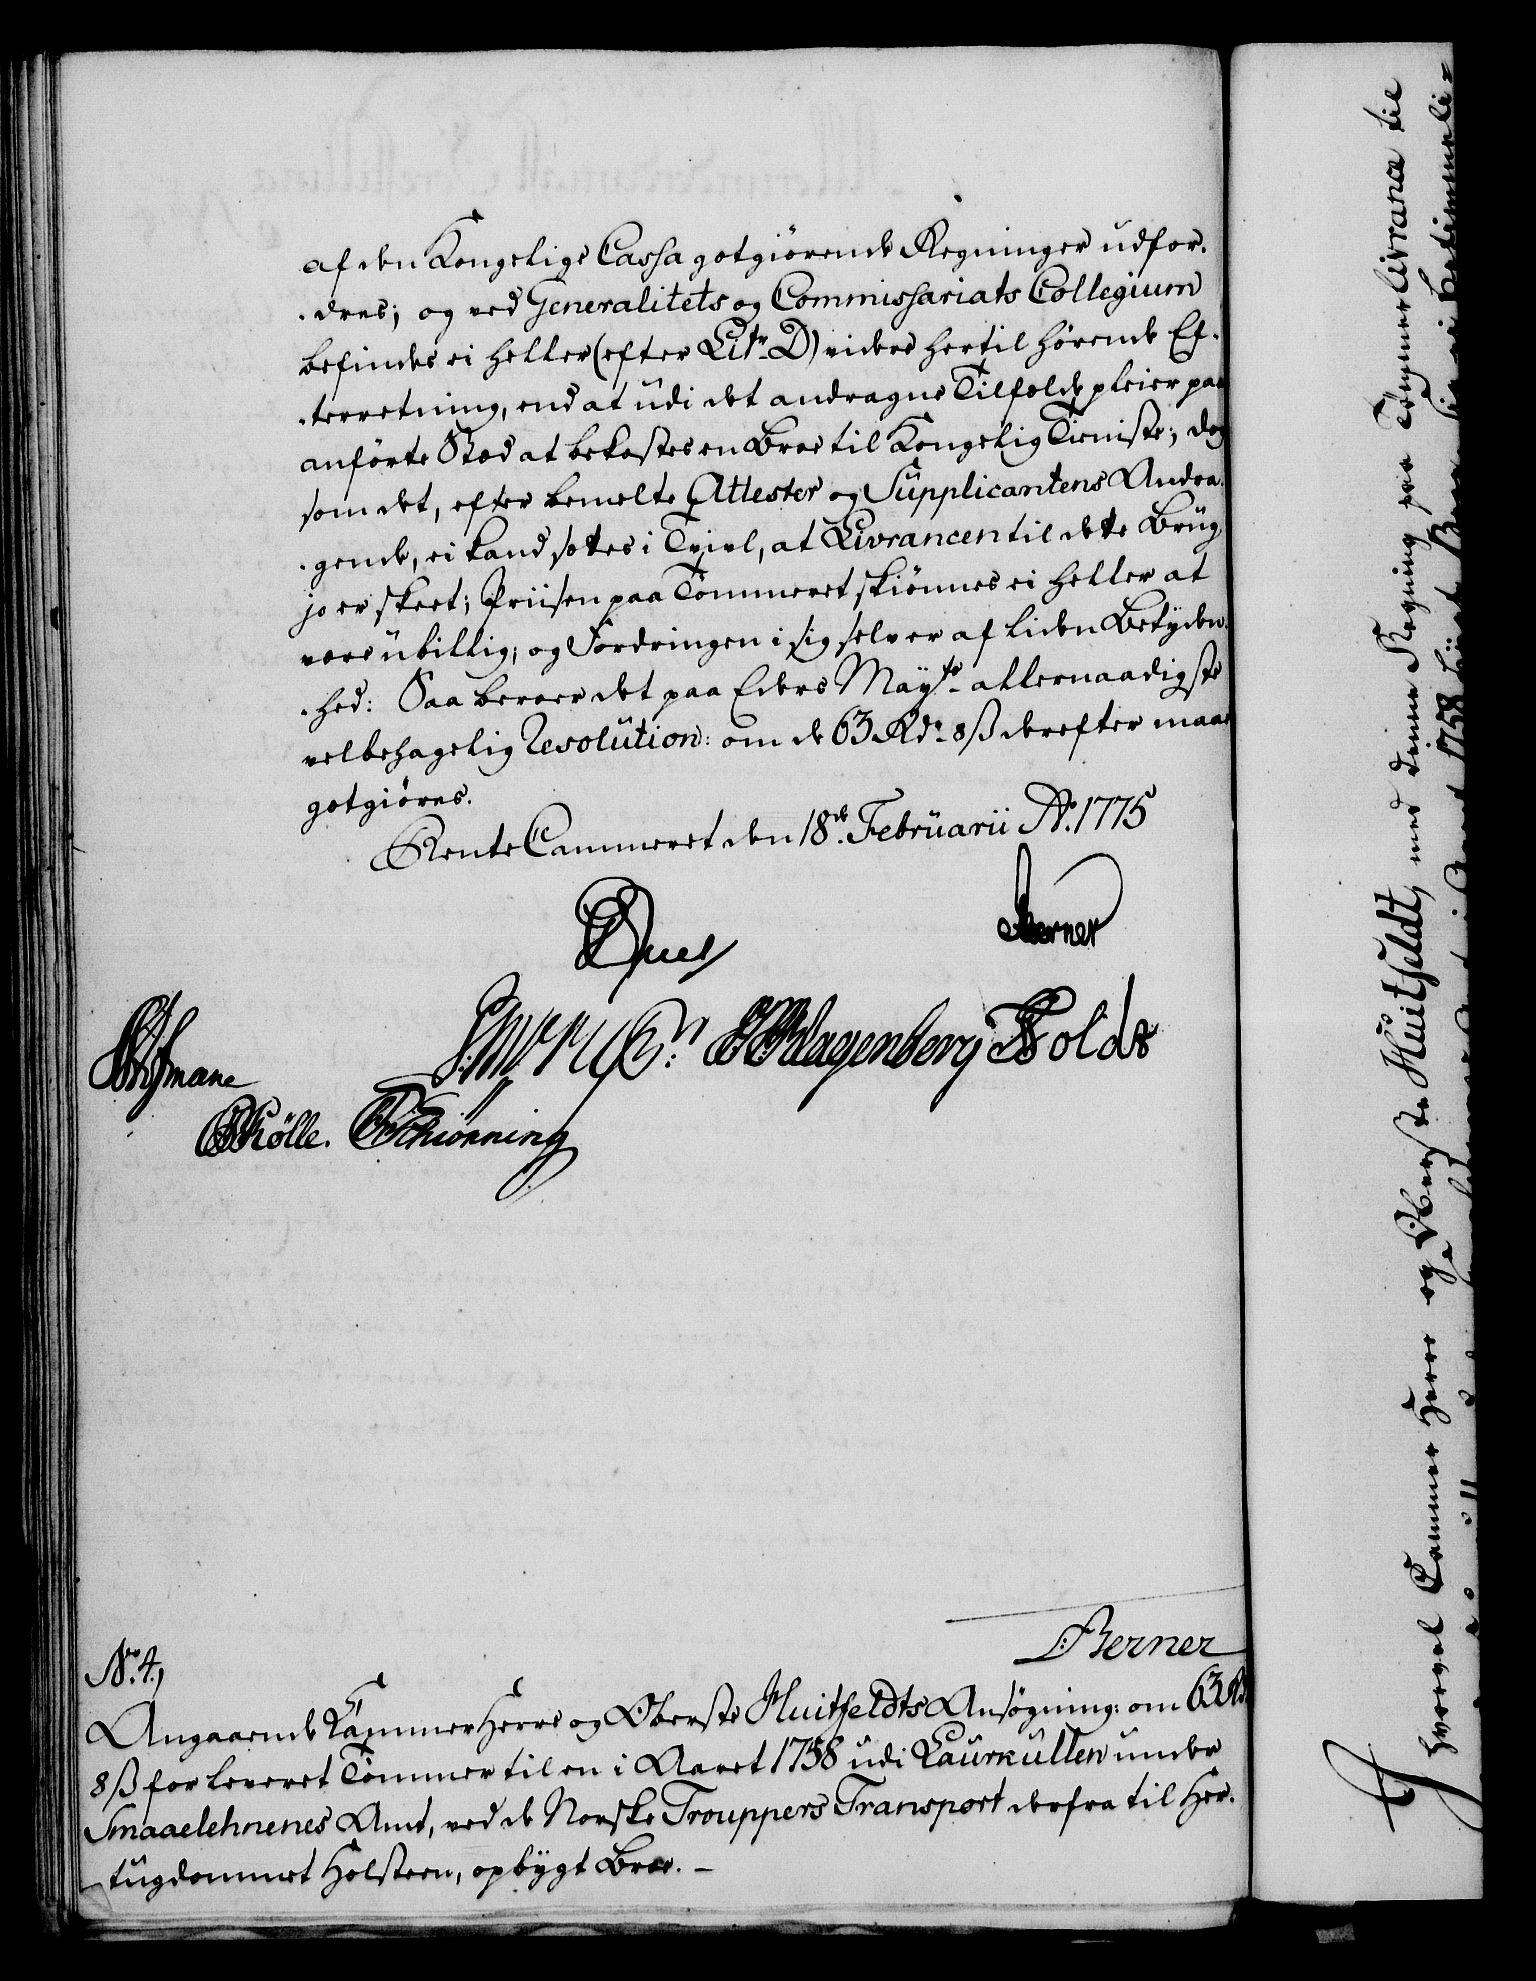 af den Kongelige Cassa gotgiörende Regninger udfor-
dres; og ved Generalitets og Commissariats Collegium
befindes ei heller (efter Litr. D) videre hertil hörende Ef-
terretning, end at udi det andragne Tilfelde pleier paa
anförte Stæd at bekostes en Broe til Kongelig Tieniste; dog
som det, efter bemelte Attester og Supplicantens Andra-
gende, ei kand sættes i Tvivl, at Livrancen til dette Brug
jo er skeet; Priisen paa Tömmeret skiönnes ei heller at
være ubillig, og Fordringen i sig selv er af liden Betyden-
hed: Saa beroer det paa Eders Mayts allernaadigste
velbehagelig Resolution: om de 63 Rdr. 8 ß derefter maae
gotgiöres.
RenteCammeret den 18de Februarii Ao. 1775
Juel
Berner
Hagenberg Holdt
Hofmann
Kölle. Schiönning
Berner
No. 4,
Angaaende KammerHerre og Oberste Huitfeldts Ansögning: om 63 Rd
8 ß for leveret Tömmer til en i Aaret 1758 udi Laurkullen under
Smaaelehnenes Amt, ved de Norske Trouppers Transport derfra til Her-
tugdommet Holsteen, opbygt Broe. –
Hvorvel Cammer Herre og Oberste Huitfeldt, med denne Regning paa Tömmerlivrance til